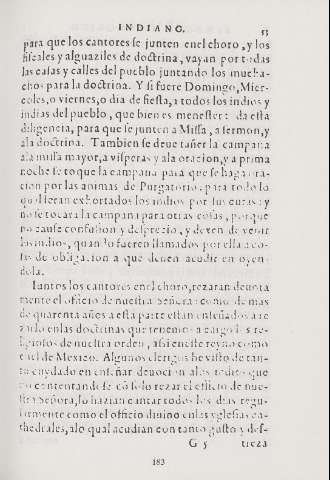 INDIANO. 53
para que los cantores se junten enel choro, y los
fiscales y alguaziles de doctrina, vayan por todas
las casas y calles del pueblo juntando los mucha-
chos para la doctrina. Y si fuere Domingo, Mier-
coles, o viernes, o dia de fiesta, a todos los indios y
indias del pueblo, que bien es menester da esta
diligencia, para que se junten a Missa, a sermon, y
ala doctrina. Tambien se deve tañer la campana
ala missa mayor, a visperas y ala oracion, y a prima
noche se toque la campana para que se haga ora-
cion por las animas de Purgatorio, para todo lo
qual seran exhortados los indios por sus curas: y
no se tocara la campana para otras cosas, porque
no cause confusion y desprecio, y dexen de venir
los indios, quando fueren llamados por ella a co-
sas de obligacion a que deuen acudir en oyen-
dola.
Iuntos los cantores enel choro, rezaran deuota
mente el officio de nuestra Señora: como de mas
de quarenta años a esta parte estan enseñados a re
zarlo enlas doctrinas que tenemos a cargo los re-
ligiosos de nuestra orden, assi en este reyno como
enel de Mexico. Algunos clerigos he visto de tan-
to cuydado en enseñar deuocion alos indios que
no contentandose cõ solo rezar el officio de nue-
stra Señora, lo hazian cantar todos los dias regu-
larmente como el officio diuino enlas yglesias ca-
thedrales, alo qual acudian con tanto gusto y des-
G 5 treza
183